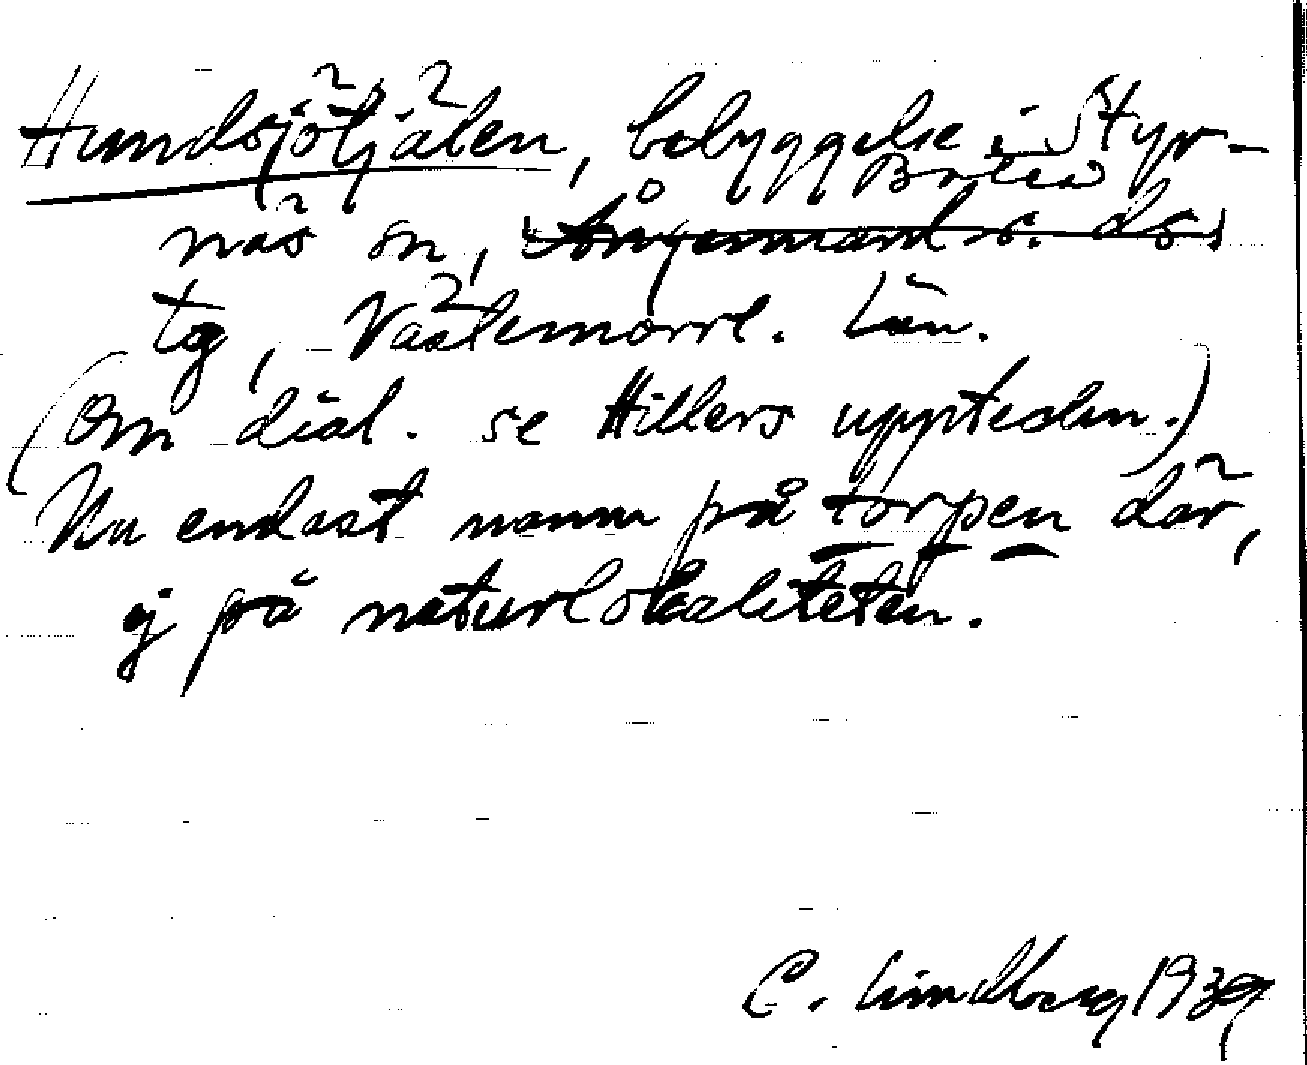 Hundsjötjälen, bebyggelse i Styr-
Boteå
näs sn, Ångermanl. s. ds.
tg, Västernorrl. län.
(Om dial. se Hillers uppteckn.)
Nu endast namn på torpen där,
ej på naturlokaliteten.
C. Lindberg 1939